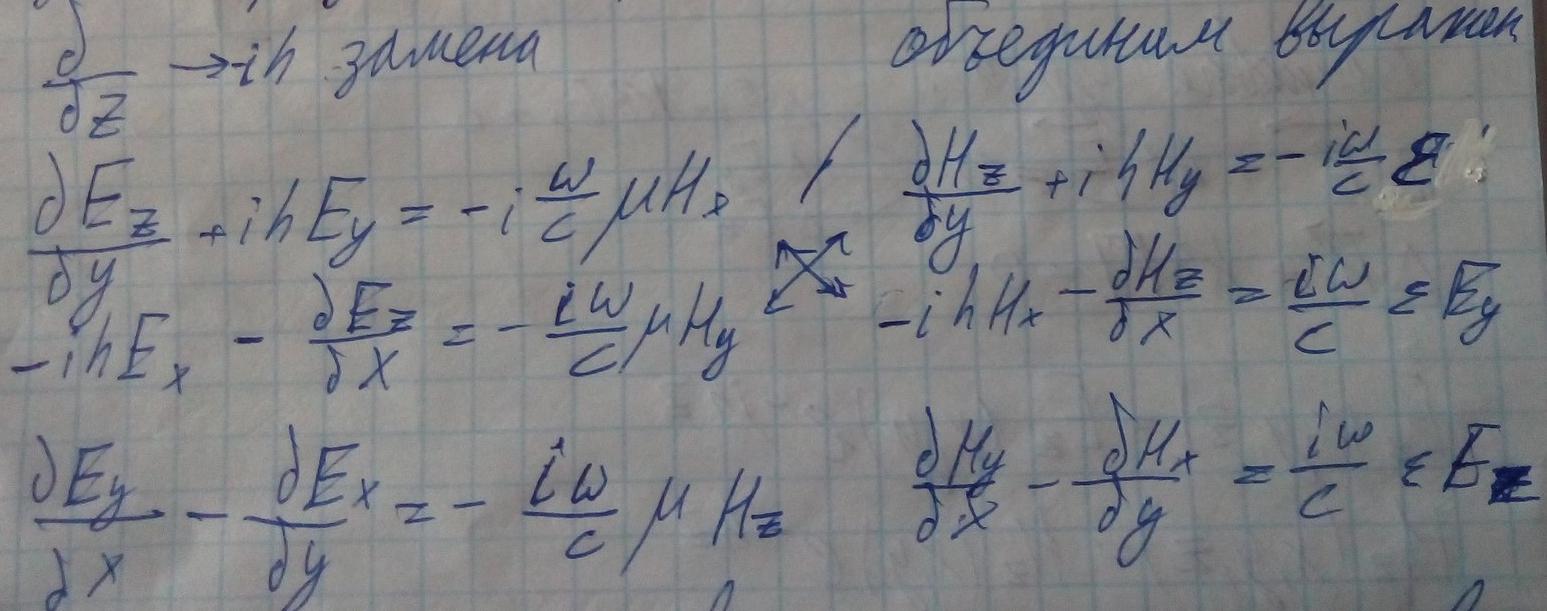 ∂/∂z → -ih замена объединим выражен
∂E_z/∂y + ihE_y = -i ω/c μH_x / ∂H_z/∂y + ihH_y = - iω/c ε
-ihE_x - ∂E_z/∂x = - iω/c μH_y -ihH_x - ∂H_z/∂x = iω/c εE_y
∂E_y/∂x - ∂E_x/∂y = - iω/c μH_z ∂H_y/∂x - ∂H_x/∂y = iω/c εE_z